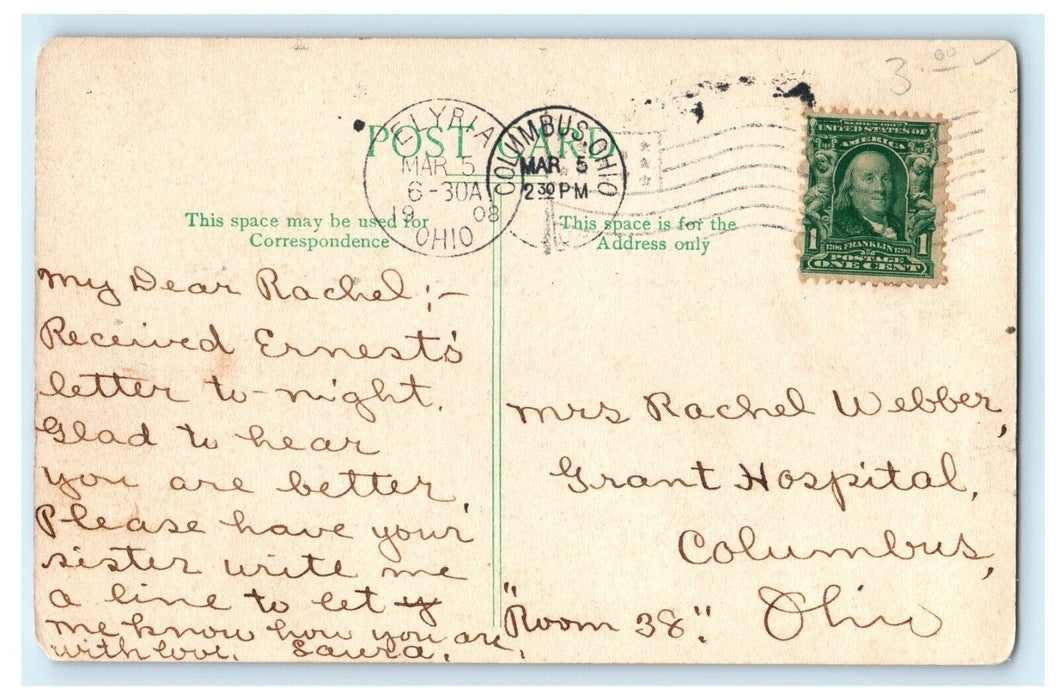 3.00
POST CARD
ELYRIA
MAR 5
6-30A
1908
OHIO
COLUMBUS, OHIO
MAR 5
2 30 PM
SERIES 1902
UNITED STATES OF
AMERICA
1 1706 FRANKLIN 1790 1
POSTAGE
ONE CENT
This space may be used for
Correspondence
This space is for the
Address only
My Dear Rachel;-
Received Ernest's
letter to-night.
Glad to hear
you are better.
Please have your
sister write me
a line to let y
me know how you are,
with love. Laura.
Mrs Rachel Webber,
Grant Hospital,
Columbus,
Ohio
"Room 38".